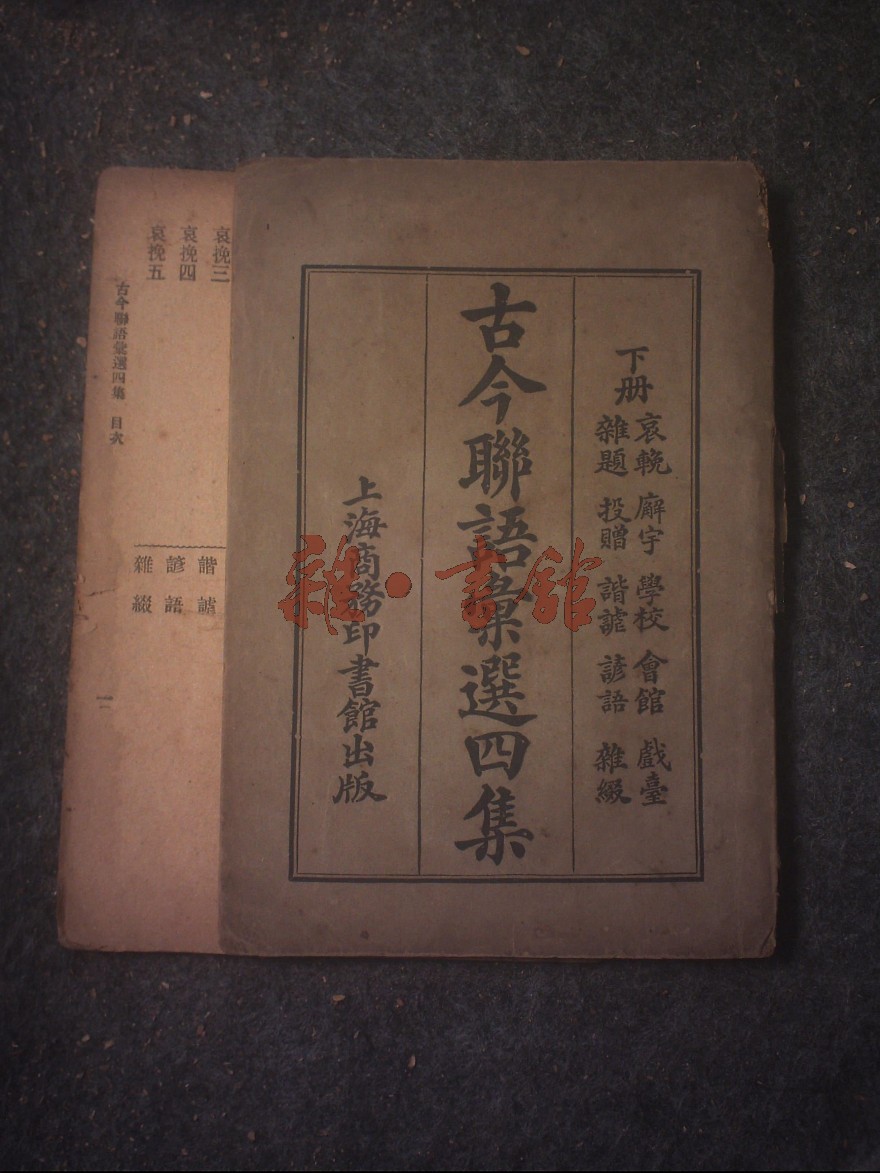 下册
哀輓 廨宇 學校 會館 戲臺
雜題 投贈 諧謔 諺語 雜綴
古今聯語彙選四集
上海商務印書館出版
哀挽三
哀挽四
哀挽五
諧謔
諺語
雜綴
古今聯語彙選四集 目次
雜·書館